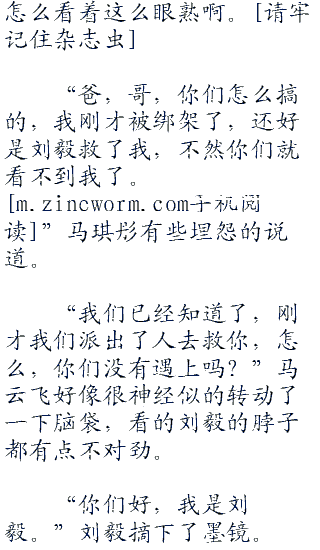 怎么看着这么眼熟啊。[请牢
记住杂志虫]
“爸，哥，你们怎么搞
的，我刚才被绑架了，还好
是刘毅救了我，不然你们就
看不到我了。
[m.zincworm.com手机阅
读]”马琪彤有些埋怨的说
道。
“我们已经知道了，刚
才我们派出了人去救你，怎
么，你们没有遇上吗？”马
云飞好像很神经似的转动了
一下脑袋，看的刘毅的脖子
都有点不对劲。
“你们好，我是刘
毅。”刘毅摘下了墨镜。